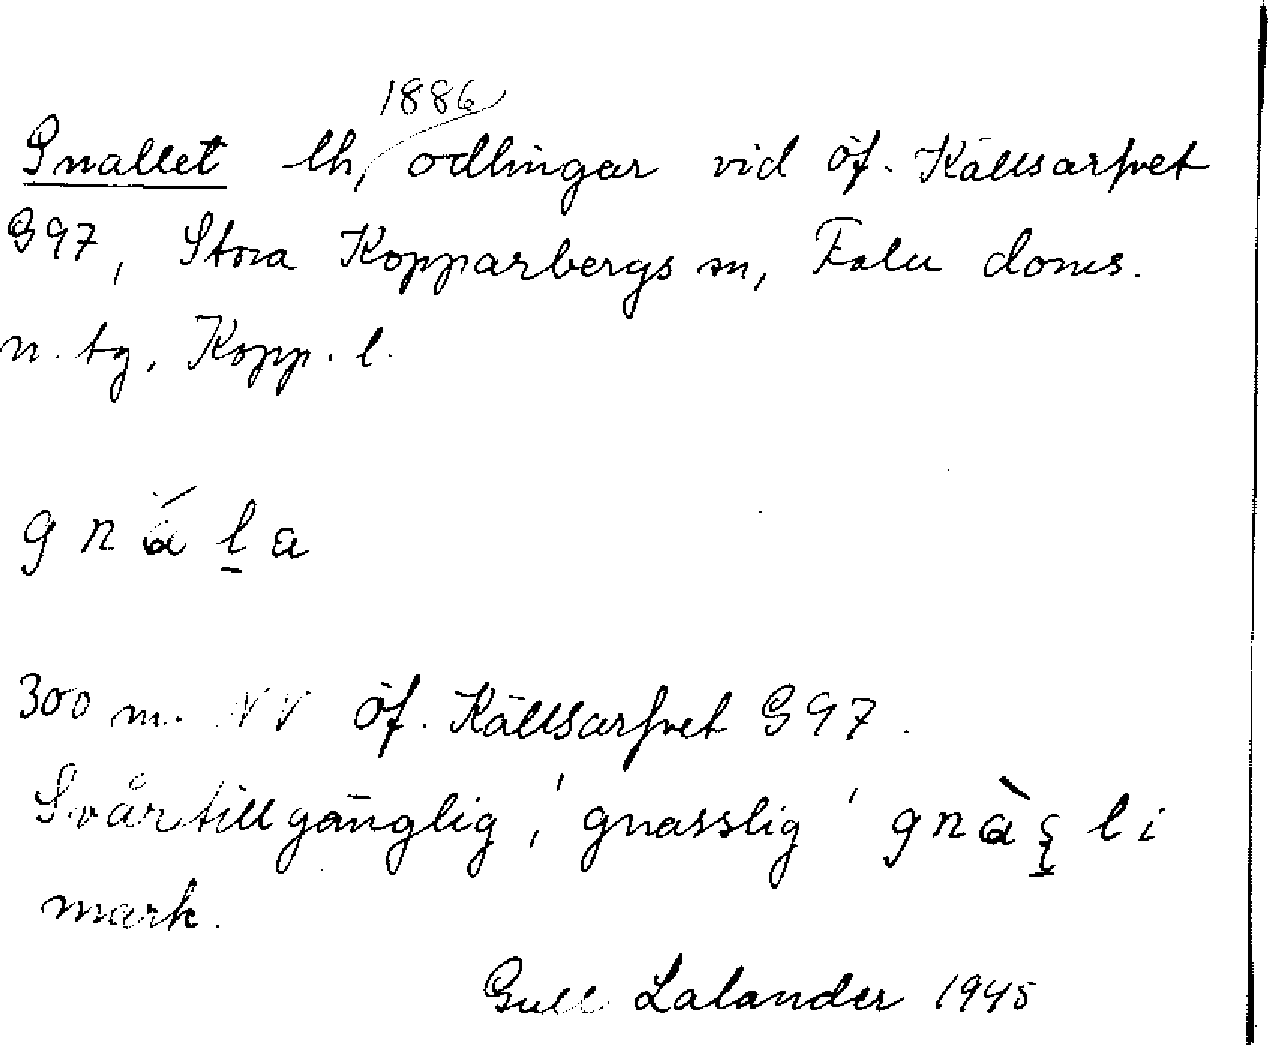 1886
Gnallet lh, odlingar vid öf. Källsarfvet
G97, Stora Kopparbergs sn, Falu doms.
n. tg, Kopp. l.
gnála
300 m. NV öf. Källsarfvet G97.
Svårtillgänglig, 'gnasslig' gnàsli
mark.
Gull Lalander 1945